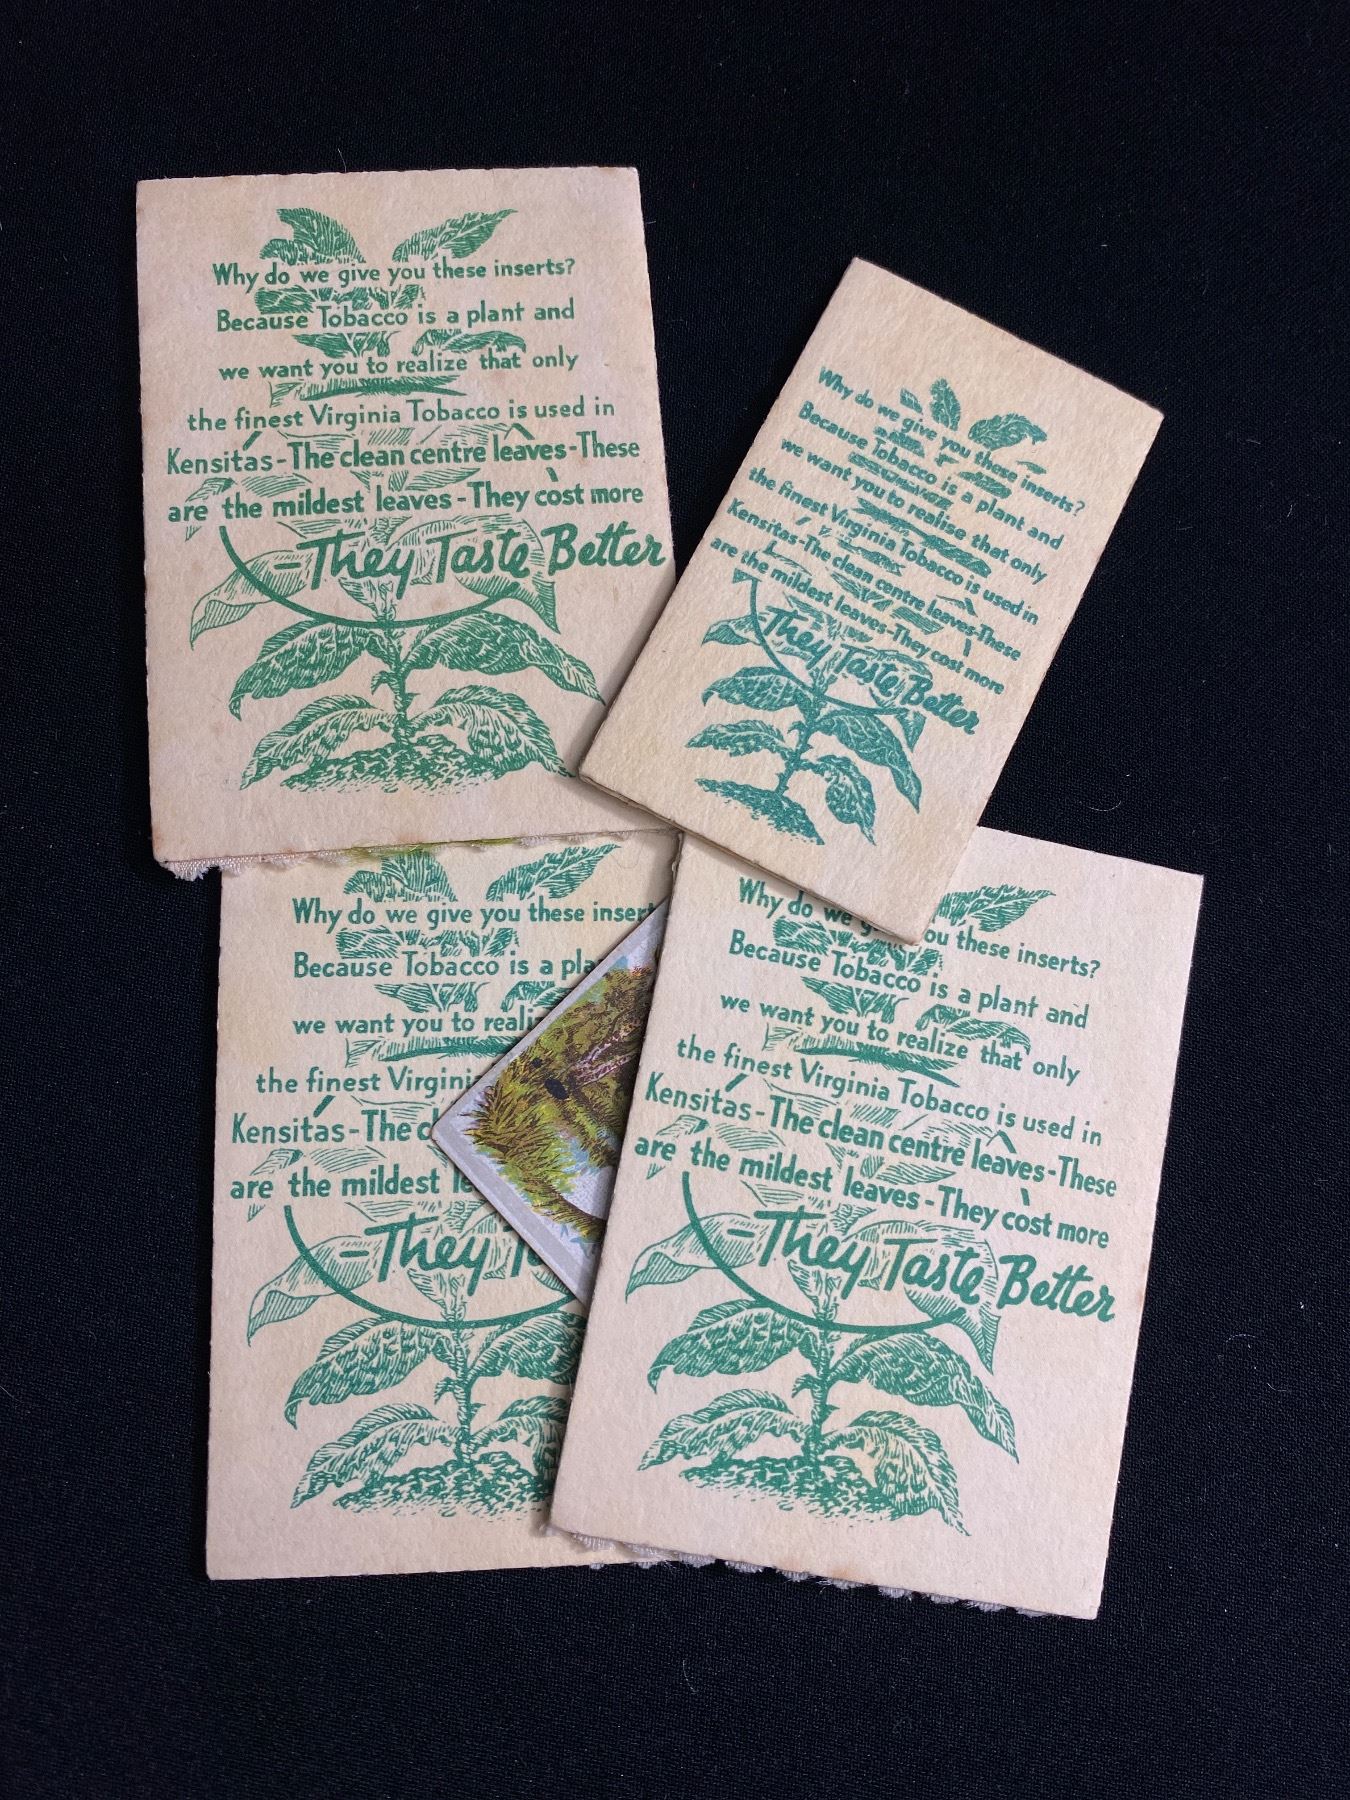 Why do we give you these inserts?
Because Tobacco is a plant and
we want you to realize that only
the finest Virginia Tobacco is used in
Kensitas-The clean centre leaves-These
are the mildest leaves-They cost more
-They Taste Better
Why do we give you these inserts?
Because Tobacco is a plant and
we want you to realise that only
the finest Virginia Tobacco is used in
Kensitas-The clean centre leaves-These
are the mildest leaves-They cost more
-They Taste Better
Why do we give you these insert
Because Tobacco is a pla
we want you to reali
the finest Virgini
Kensitas-The c
are the mildest le
-They T
Why do we g ou these inserts?
Because Tobacco is a plant and
we want you to realize that only
the finest Virginia Tobacco is used in
Kensitas-The clean centre leaves-These
are the mildest leaves-They cost more
-They Taste Better